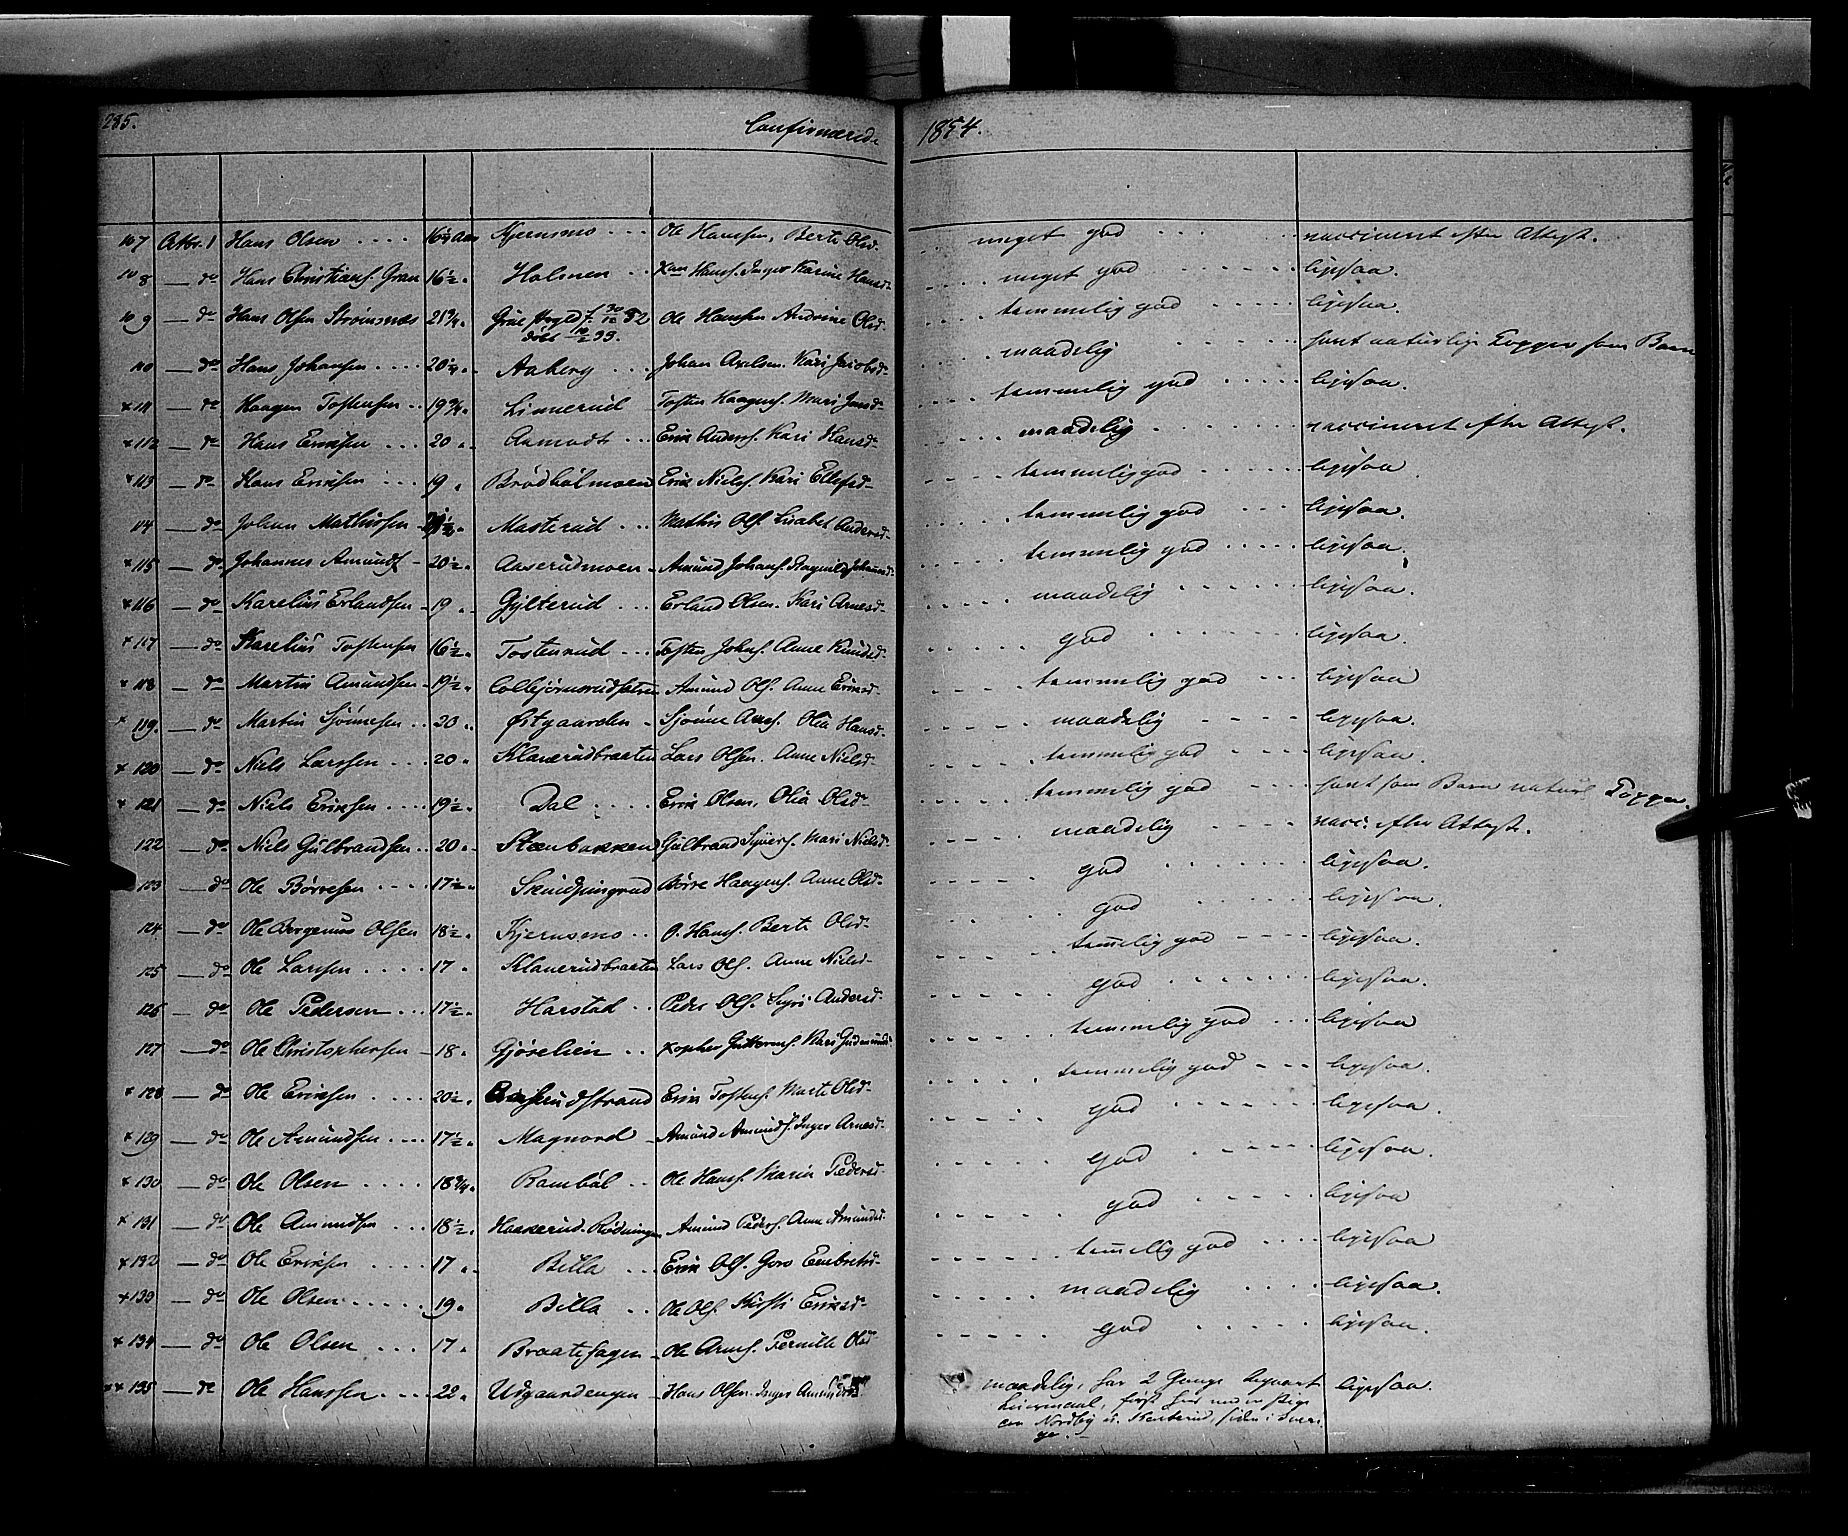 285. Confirmerede 1854.
107 Octbr. 1 Hans Olsen 16 3/4 Aar Kjernsmo Ole Hanssen, Berte Olsd. meget god vaccineret efter Attest.
108 — do Hans Christians. Gran 16 1/2 Holmen Xan Hans. Inger Karine Hansd. meget god ligesaa.
109 — do Hans Olsen Strømsnæs 21 3/4 Grue Ole Hanssen Andrine Olsd. temmelig god ligesaa.
110 — do Hans Johansen 20 1/4 Aaberg Johan Axelsen Kari Jacobsd. maadelig havt naturlige Kopper som Barn
x 111 — do Haagen Tostensen 19 3/4 Linnerud Tosten Haagens. Mari Jensd. temmelig god ligesaa.
x 112 — do Hans Eriksen 20 Aamodt Erik Anders. Kari Hansd. maadelig vaccineret efter Attest.
x 113 — do Hans Eriksen 19 Brødbølmoen Erik Niels. Kari Ellefsd. temmelig god ligesaa
114 — do Johan Mathissen Masterud Mathis Ols. Lisabet Andersd. temmelig god ligesaa.
x 115 — do Johannes Amunds. 20 1/2 Aaserudmoen Amund Johans. Ragnild Johannesd. temmelig god ligesaa.
x 116 — do Karelius Erlandsen 19 Gylterud Erland Olsen. Kari Arnesd. maadelig ligesaa.
x 117 — do Karelius Tostensen 16 1/2 Tostenrud Tosten Johns. Anne Knudsd. god ligesaa.
x 118 — do Martin Amundsen 19 1/2 Collbjørnsrudsætren Amund Ols. Anne Eriksd. temmelig god ligesaa
x 119. — do Martin Sjønnesen 20 Østgaarden Sjønne Arnes. Olia Hansd. maadelig ligesaa.
x 120 — do Niels Larssen 20 Klanerudbraaten Lars Olsen. Anne Nielsd. temmelig god ligesaa.
x 121 — do Niels Eriksen 19 1/2 Dal Erik Olsen, Olia Olsd. temmelig god havt som Barn naturl. Kopper.
122 — do Niels Gulbrandsen 20 Steenbakken Gulbrand Syvers. Mari Nielsd. maadelig vacc. efter Attest.
123 — do Ole Børresen 17 1/2 Børre Haagens. Anne Olsd. god ligesaa
124 — do Ole Bergenus Olsen 18 1/2 Kjernsmo O. Hans. Berte Olsd. god ligesaa.
125 — do Ole Larssen 17 Klanerudbraaten Lars Ols. Anne Nielsd. temmelig god ligesaa.
126 — do Ole Pedersen 17 1/2 Harstad Peder Ols. Sigri Andersd. god ligesaa.
127 — do Ole Christophersen 18 Gjøselien Xopher Guttorms. Kari Gudmunds. temmelig god ligesaa
x 128 — do Ole Eriksen 20 1/2 Erik Tostens. Marte Olsd. temmelig god ligesaa.
x 129 — do Ole Amundsen 17 1/2 Magnord Amund Amunds. Inger Arnesd. god ligesaa.
x 130 — do Ole Olsen 18 3/4 Rambøl Ole Hans. Maria Pedersd. god ligesaa.
x 131 — do Ole Amundsen 18 1/2 Haakerud-Rødningen Amund Peders. Anne Amundsd. god ligesaa
x 132 — do Ole Eriksen 17 Billa Erik Ols. Goro Embretsd. temelig god ligesaa
x 133 — do Ole Olsen 19 Billa Ole Ols. Kirsti Eriksd. maadelig ligesaa.
x 134 — do Ole Olsen 17 Braatehagen Ole Arnes. Pernille Olsd. god ligesaa.
xx 135 — do Ole Hanssen 22 Udgaardengen Hans Olsen. Inger Amundsd. maadelig, har 2 Gange begaaet ligesaa.
Leiermaal, først her med en Pige